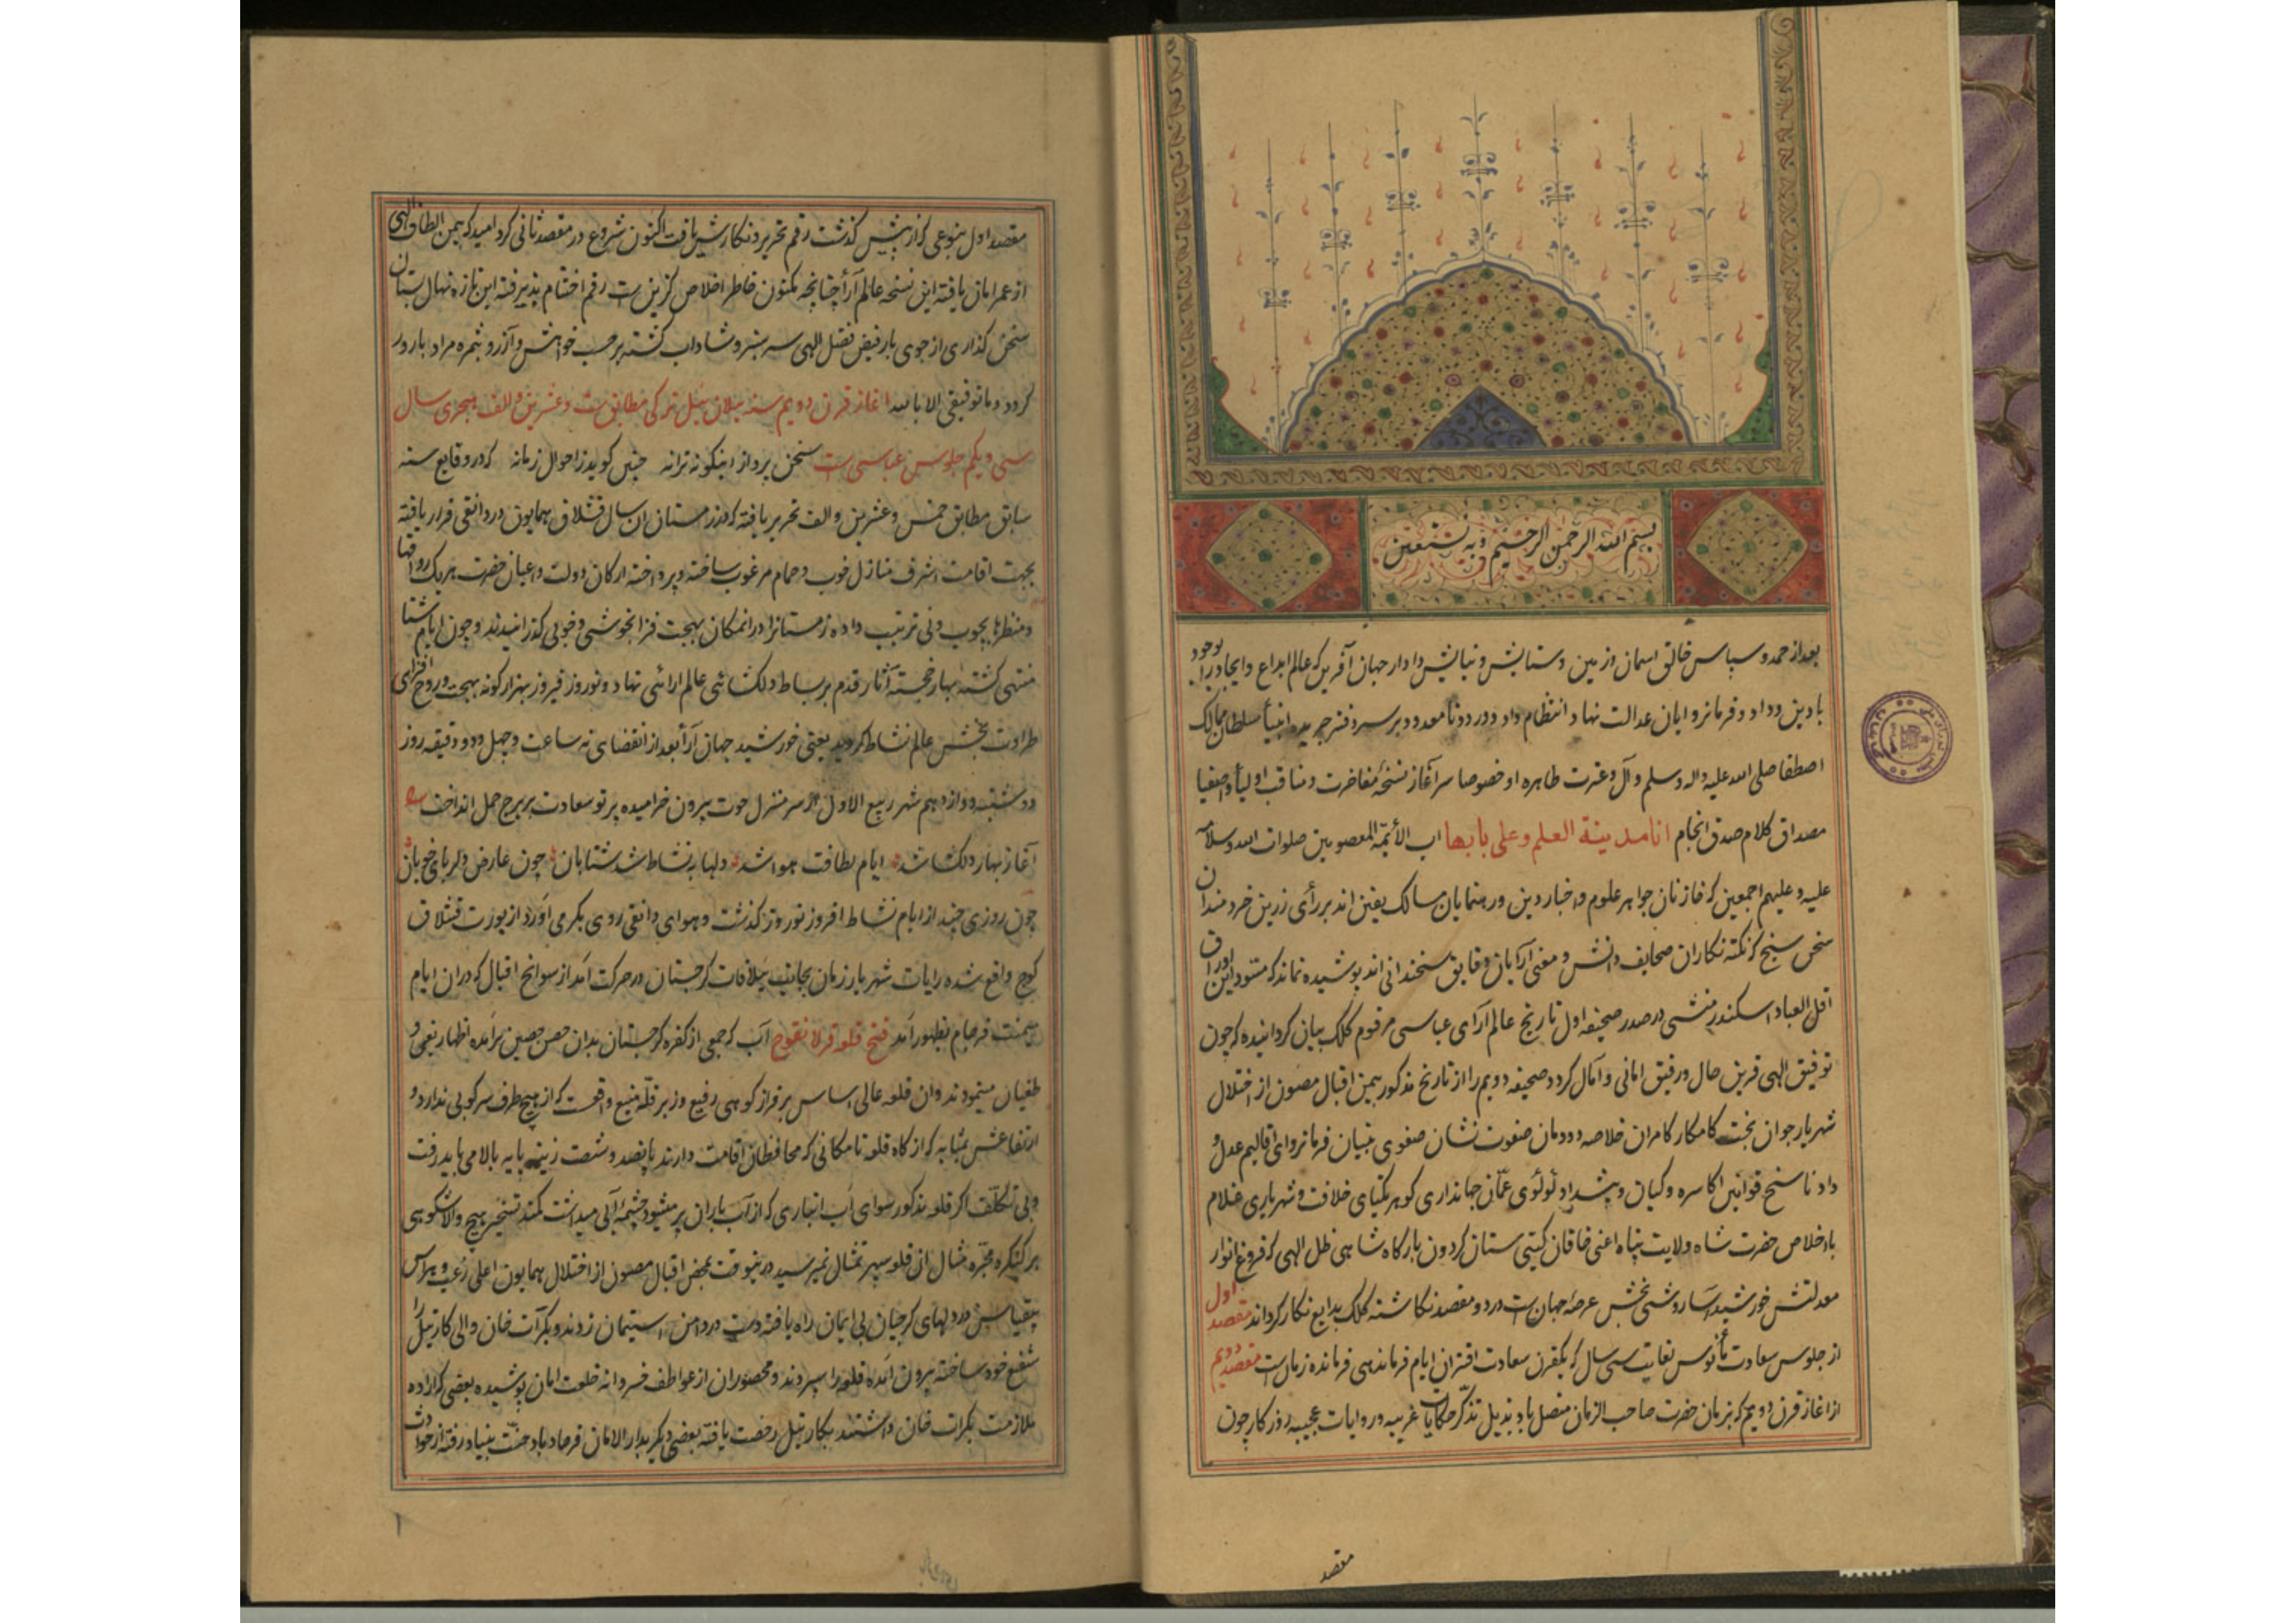 بسم الله الرحمن الرحیم و به نستعین
بعد از حمد و سپاس خالق اسمان و زمین و ستایش و نیایش دادار جهان آفرین که عالم ابداع و ایجاد را بوجود
با دین و داد و فرمانروایان عدالت نهاد انتظام داد و درود نامعدود بر سر دفتر جریده انبیأ سلطان ممالک
اصطفا صلی الله علیه واله وسلم و آل و عترت طاهره او خصوصا سرآغاز نسخهٔ مفاخرت و مناقب اولیأ و اصفیا
مصداق کلام صدق انجام انا مدینة العلم و علی بابها اب الأئمّة المعصومین صلوات الله وسلامه
علیه و علیهم اجمعین که خازنان جواهر علوم و اخبار دین و رهنمایان مسالک یقین اند بر رأی زرین خردمندان
سخن سنج که نکته نکاران صحایف دانش و معنی آرایان دقایق سخندانی اند پوشیده نماند که مسود این اوراق
اقل العباد اسکندر منشی در صدر صحیفه اول تاریخ عالم آرای عباسی مرقوم کلک بیان کردانیده که چون
توفیق الهی قرین حال و رفیق امانی و آمال کردد صحیفه دویم را از تاریخ مذکور بیمن اقبال مصون از اختلال
شهریار جوان بخت کامکار کامران خلاصه دودمان صفوت نشان صفوی بنیان فرمانروای اقالیم عدل و
داد ناسخ قوانین اکاسره و کیان و پیشداد لؤلؤی عمّان جهانداری کوهر یکتای خلافت و شهریاری غلام
باخلاص حضرت شاه ولایت پناه اعنی خاقان کیتی ستان کردون بارکاه شاهی ظل الهی که فروغ انوار
معدلتش خورشید آسا روشنی بخش عرصهٔ جهان است در دو مقصد نکاشته کلک بدایع نکار کرداند مقصد اول
از جلوس سعادت مأنوس لغایت سی سال که یکقرن سعادت اقتران ایام فرماندهی فرمانده زمان است مقصد دویم
از اغاز قرن دویم که بزمان حضرت صاحب الزمان متصل باد بذیل تذکّر حکایات غریبه و روایات عجیبه روزکار چون
مقصد
مقصد اول بنوعی که از پیش کذشت رقم تحریر و نکارش یافت اکنون شروع در مقصد ثانی کرد امید که بیمن الطاف الهی
از عمر امان یافته این نسخه عالم آرأ چنانچه مکنون خاطر اخلاص کزین است رقم اختتام پذیرفته این تازه نهال بستان
سخن کذاری از جویبار فیض فضل الهی سرسبز و شاداب کشته بر حسب خواهش و آرزو بثمره مراد بارور
کردد و ما توفیقی الا بالله اغاز قرن دویم سنه ییلان ئیل ترکی مطابق ست و عشرین و الف هجری سال
سی و یکم جلوس عباسی است سخن پرداز اینکونه ترانه چنین کوید ز احوال زمانه که در وقایع سنه
سابق مطابق خمس و عشرین و الف تحریر یافته که در زمستان ان سال قشلاق همایون در دانقی قرار یافته
بجهت اقامت اشرف منازل خوب و حمام مرغوب ساخته و پرداخته ارکان دولت و اعیان حضرت هر یک رواقها
و منظرها بچوب و نی ترتیب داده زمستانرا در انمکان بهجت فزا بخوشی و خوبی کذرانیدند و چون ایام شتا
منتهی کشته بهار خجسته آثار قدم بر بساط دلکشائی عالم ارائی نهاد و نوروز فیروز بهزار کونه بهجت و روح افزای
طراوت بخش عالم نشاط کردید یعنی خورشید جهان آرأ بعد از انقضای نه ساعت و چهل و دو دقیقه روز
دوشنبه دوازدهم شهر ربیع الاول از سر منزل حوت بیرون خرامیده پرتو سعادت بر برج حمل انداخت
آغاز بهار دلکشا شد ایام لطافت هوا شد دلها به نشاط شد شتابان چون عارض دلربای خوبان
چون روزی چند از ایام نشاط افروز نوروز کذشت و هوای دانقی روی بکرمی آورد از یورت قشلاق
کوچ واقع شده رایات شهریار زمان بجانب ییلاقات کرجستان در حرکت آمد از سوانح اقبال که دران ایام
میمنت فرجام بظهور آمد فتح قلعه آب که جمعی از کفره کرجستان بدان حصن حصین برآمده اظهار بغی و
طغیان مینمودند و ان قلعه عالی اساس بر فراز کوهی رفیع و زبر قلّه منیع واقعست که از هیچ طرف سرکوبی ندارد و
ارتفاعش بمثابه که از کاه قلعه تا مکانی که محافظان اقامت دارند پانصد و شصت زینه پایه بالا می باید رفت
و بی تکلّف اکر قلعه مذکور سوای آب انباری که از آب باران پر میشود چشمهٔ آبی میداشت کمند تسخیر هیچ والاشکوهی
بر کنکره مجرّه مثال ان قلعه سپهر تمثال نمیرسید درینوقت بمحض اقبال مصون از اختلال همایون اعلی رعب و هراس
بیقیاس در دلهای کرجیان بی ایمان راه یافته دست در دامن استیمان زدند و بکرات خان والی کارتیل را
شفیع خود ساخته بیرون آمده قلعه را سپردند و محصوران از عواطف خسروانه خلعت امان پوشیده بعضی که اراده
ملازمت بکرات خان داشتند بکارتیل رخصت یافته بعضی دیکر بدار الامان فرحاباد جنّت بنیاد رفته از حوادث